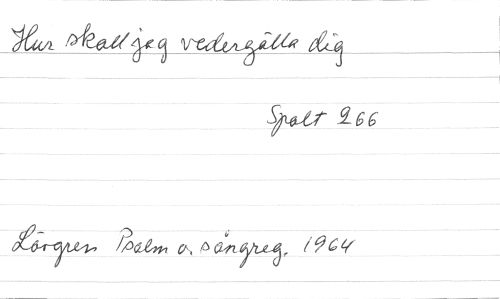 Hur skall jag vedergälla dig
Spalt 266
Lövgren Psalm o. sångreg. 1964